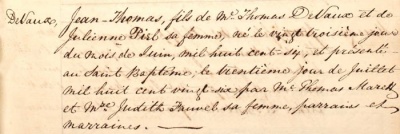 DeVaux, Jean-Thomas, fils de Mr. Thomas DeVaux et de
Julienne Pirl sa femme, né le vingt troisième jour
du mois de Juin, mil huit cent-six, et présenté
au Saint Baptême, le trentième jour de Juillet
mil huit cent vingt six par Mr. Thomas Marett
et Mse. Judith Fauvel sa femme, parrains et
marraines.